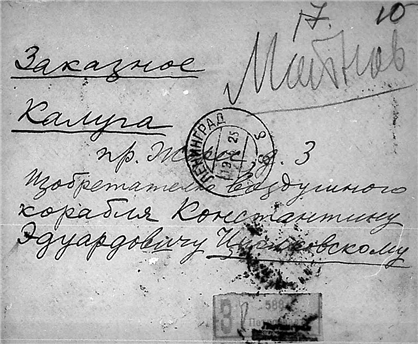 17. 10
Заказное
Калуга
ЛЕНИНГРАД
25
пр. 3
Изобретателю воздушного
корабля Константину
Эдуардовичу Циолковскому
З